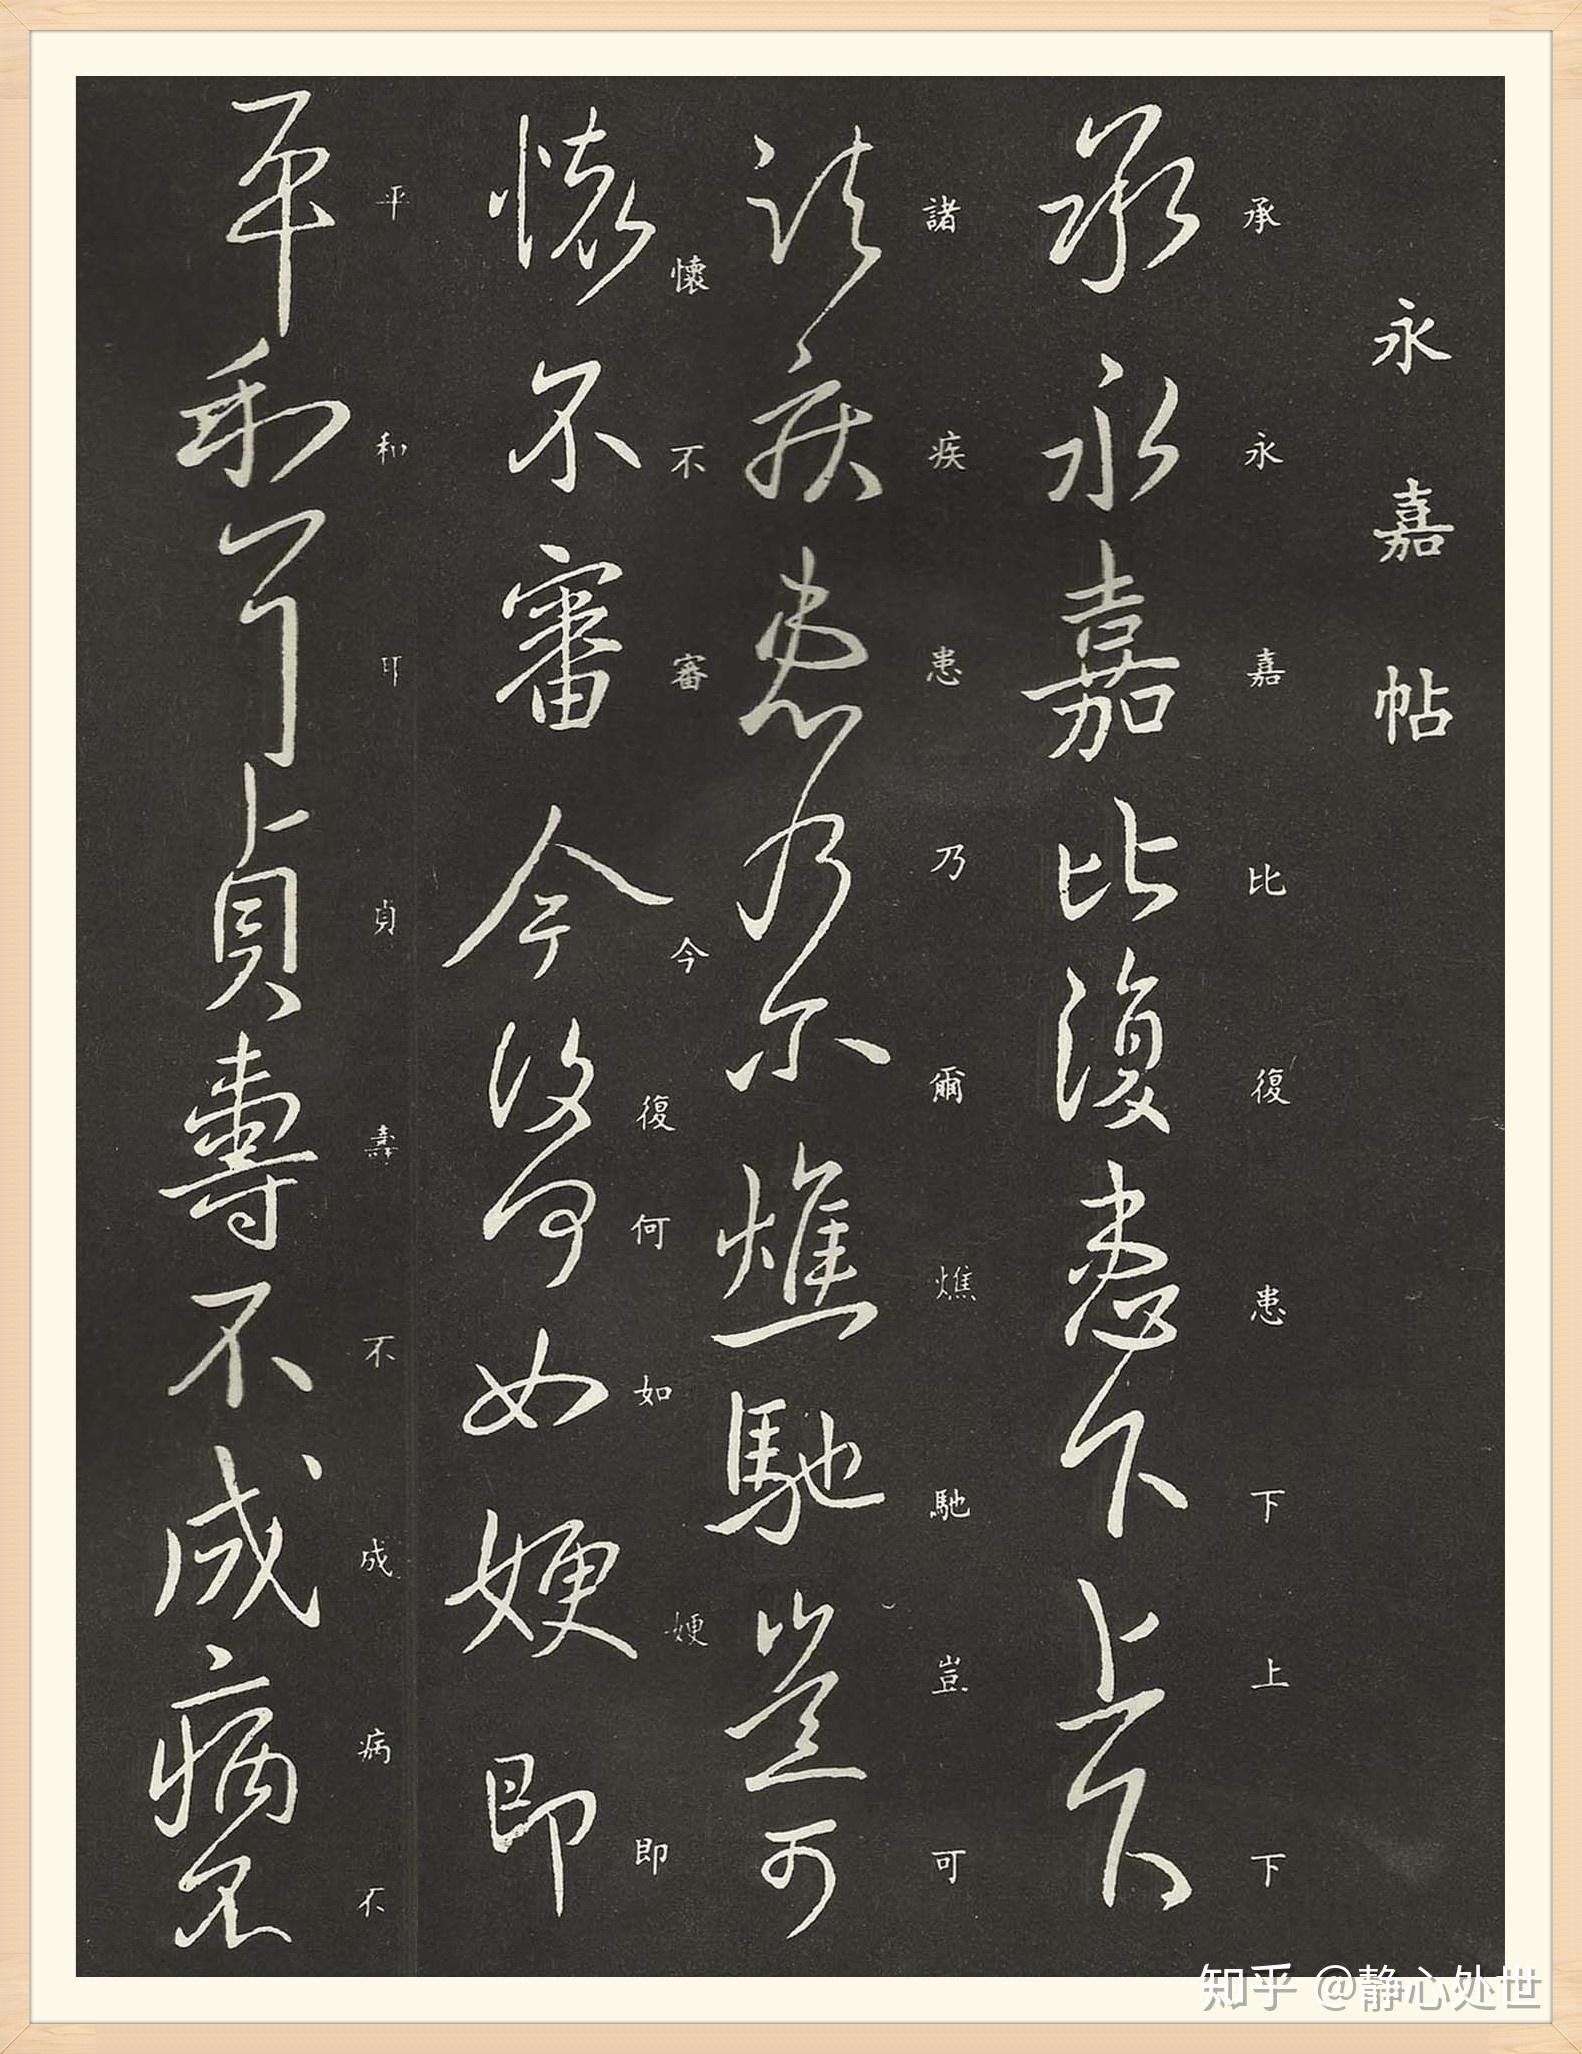 永嘉帖
承永嘉比復患下上下
承永嘉比復患下上下
諸疾患乃爾燋馳豈可
諸疾患乃尔燋馳豈可
懷不審今復何如㛐即
懷不審今復何如㛐即
平和耳貞壽不成病不
平和耳貞壽不成病不
知乎 @静心处世